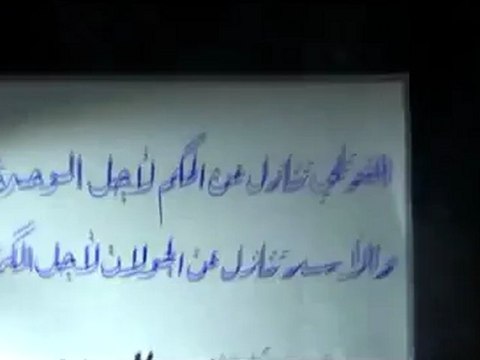 القوتلي تنازل عن الحكم لأجل الوحدة
والأسد تنازل عن الجولان لأجل الكر